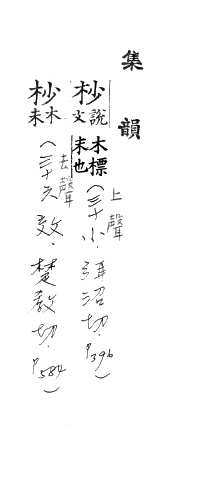 集韻
杪說文木標末也(上聲三十小.弭沼切.P396)
杪木末(去聲三十六效.楚教切.P584)